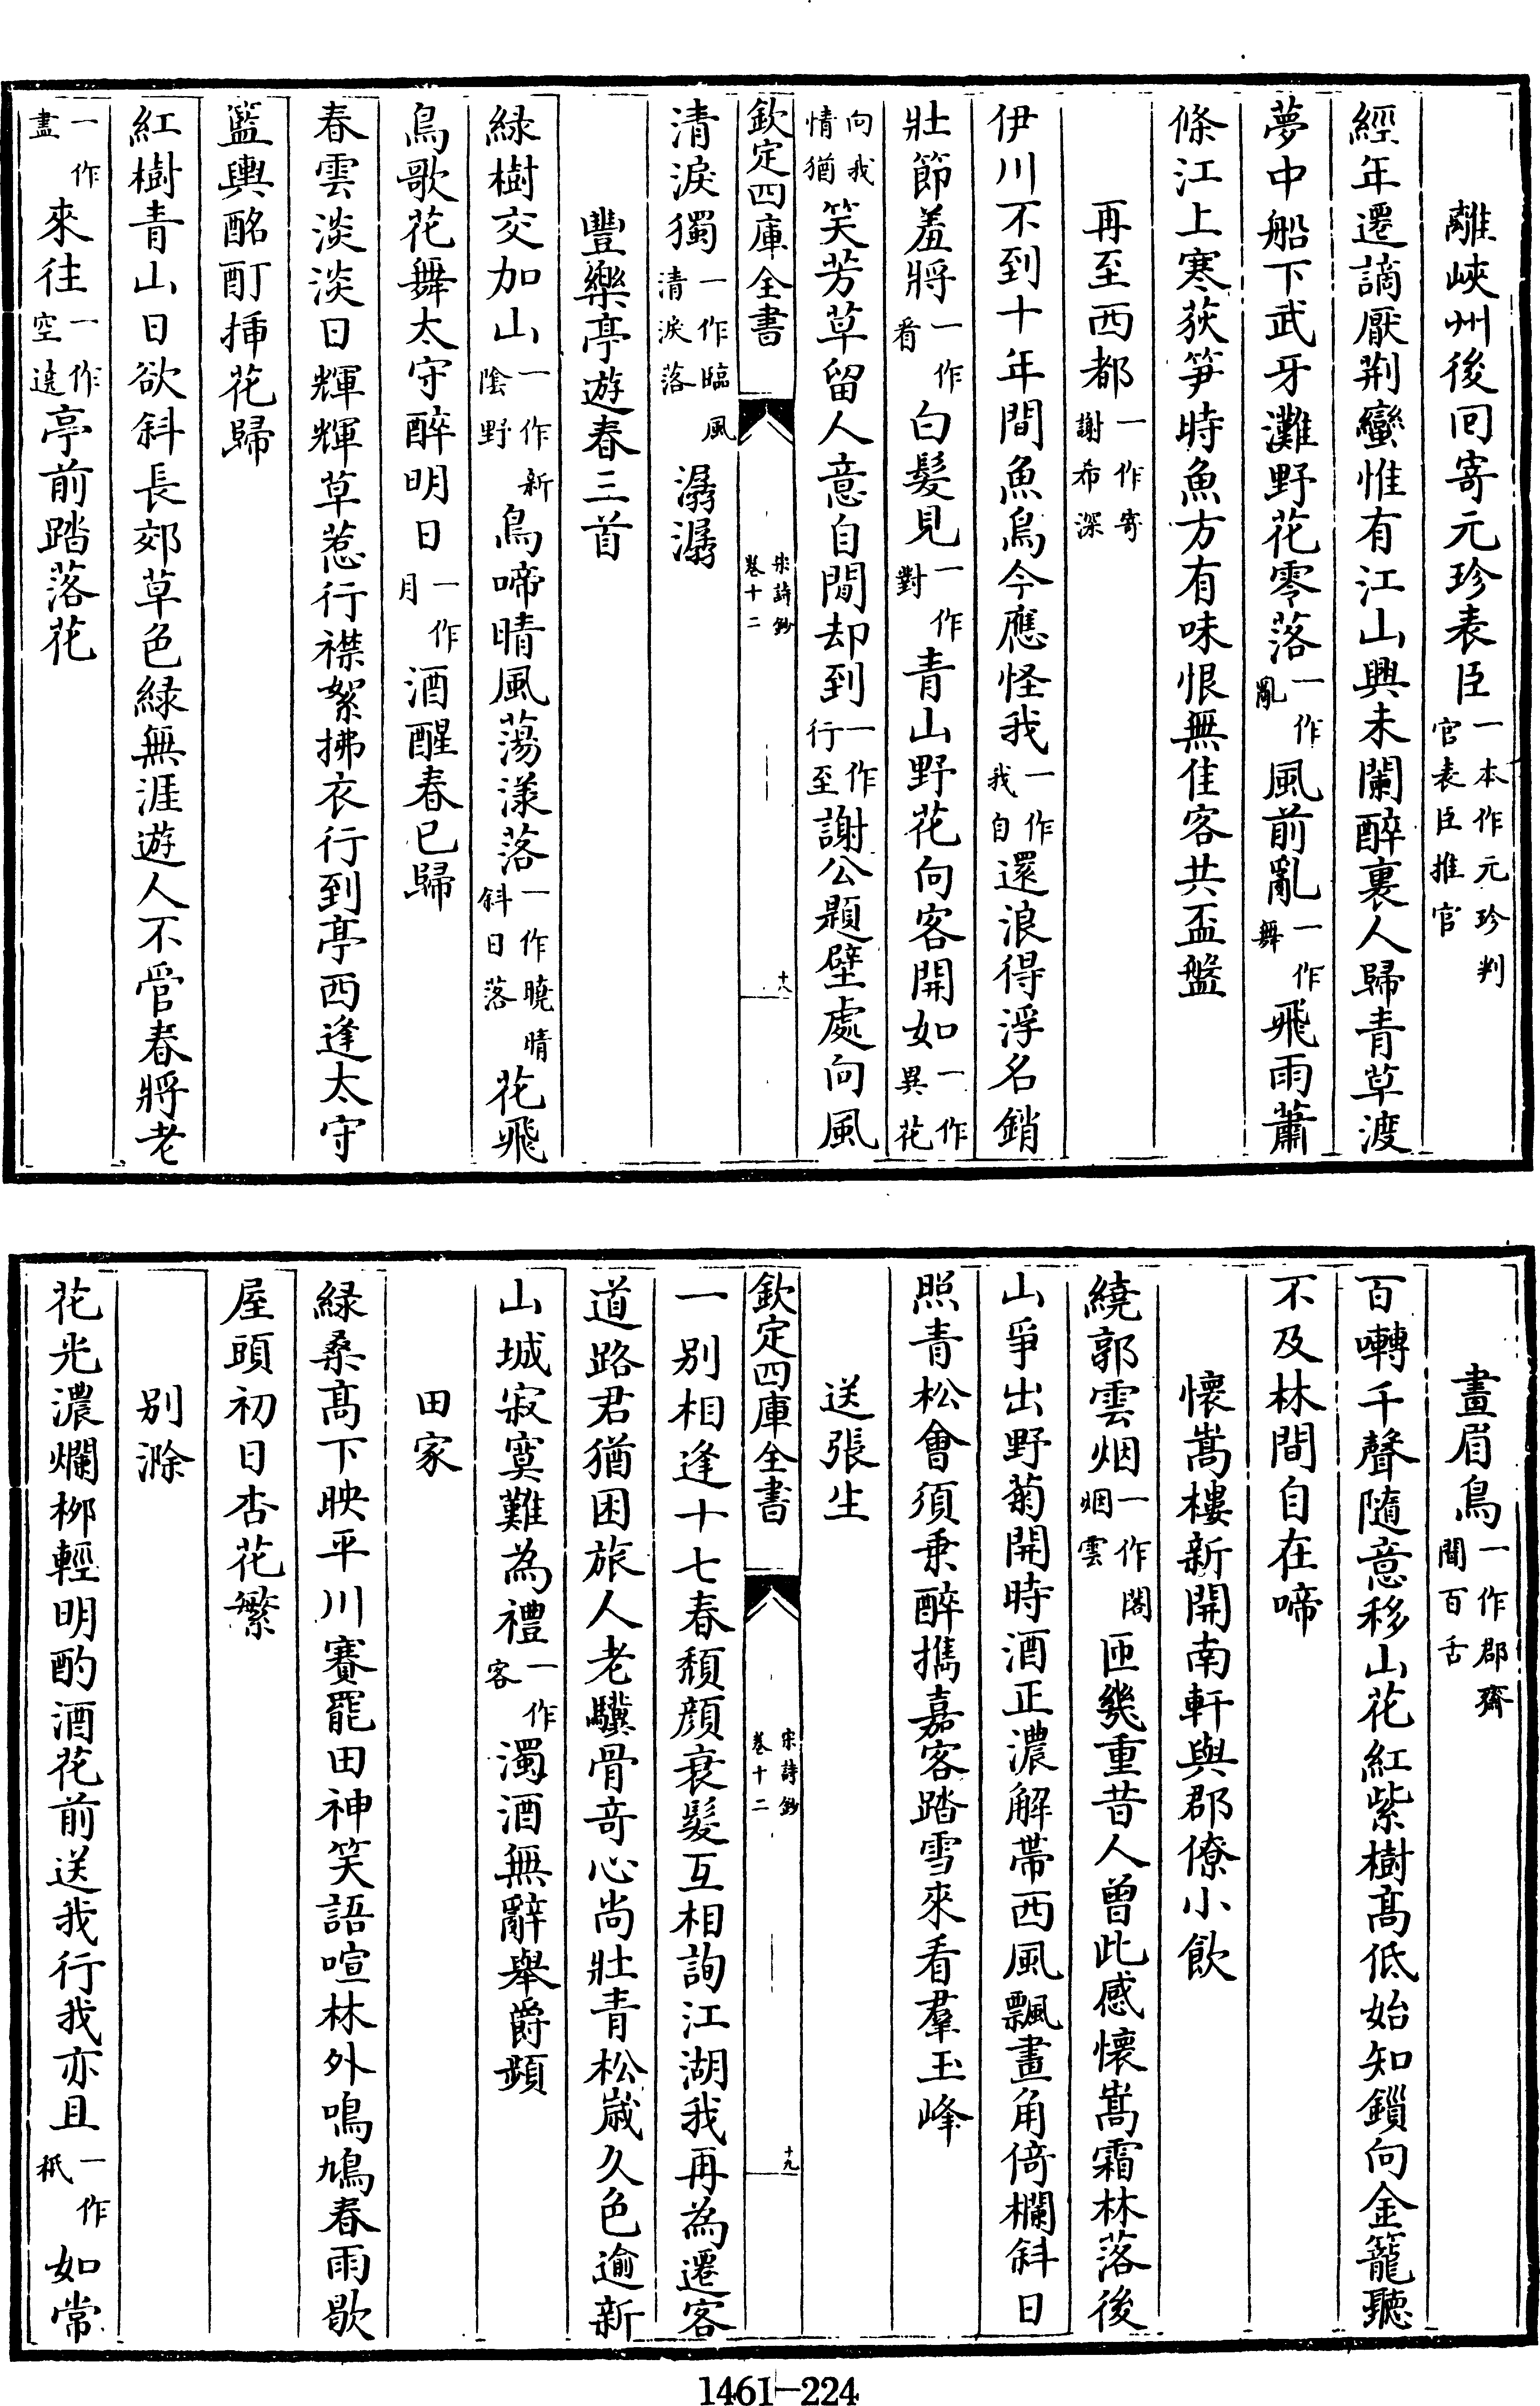 離峽州後回寄元珍表臣一本作元珍判官表臣推官
經年遷謫厭荆蠻惟有江山興未闌醉裏人歸青草渡
夢中船下武牙灘野花零落一作亂風前亂一作舞飛雨蕭
條江上寒荻笋時魚方有味恨無佳客共盃盤
再至西都一作寄謝希深
伊川不到十年間魚鳥今應怪我一作我自還浪得浮名銷
壯節羞將一作看白髮見一作對青山野花向客開如一作異花
向我情猶笑芳草留人意自閒却到一作行至謝公題壁處向風
欽定四庫全書
宋詩鈔
卷十二
十八
清淚獨一作臨風清淚落潺潺
豐樂亭遊春三首
緑樹交加山一作新陰野鳥啼晴風蕩漾落一作曉晴斜日落花飛
鳥歌花舞太守醉明日一作月酒醒春已歸
春雲淡淡日輝輝草惹行襟絮拂衣行到亭西逢太守
籃輿酩酊揷花歸
紅樹青山日欲斜長郊草色緑無涯遊人不管春將老
一作盡來往一作空遶亭前踏落花
畫眉鳥一作郡齋間百舌
百囀千聲隨意移山花紅紫樹髙低始知鎻向金籠聽
不及林間自在啼
懷嵩樓新開南軒與郡僚小飲
繞郭雲烟一作閣烟雲匝幾重昔人曾此感懷嵩霜林落後
山爭出野菊開時酒正濃解帶西風飄畫角倚欄斜日
照青松會須乗醉攜嘉客踏雪來看羣玉峰
送張生
欽定四庫全書
宋詩鈔
卷十二
十九
一别相逢十七春頽顔衰髮互相詢江湖我再為遷客
道路君猶困旅人老驥骨竒心尚壯青松歳久色逾新
山城寂寞難為禮一作客濁酒無辭舉爵頻
田家
緑桑髙下映平川賽罷田神笑語喧林外鳴鳩春雨歇
屋頭初日杏花繁
别滁
花光濃爛柳輕明酌酒花前送我行我亦且一作秖如常
1461-224